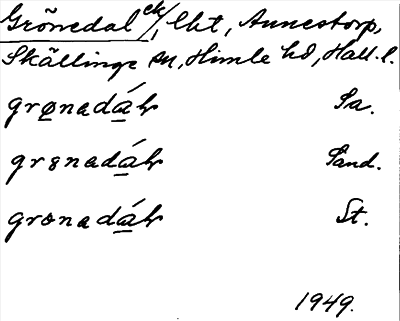 Grönedal ek/, lht, Annestorp,
Skällinge sn, Himle hd, Hall. l.
grønadáλ Sa.
grɞnadáλ Sand.
grɵnadáλ St.
1949.